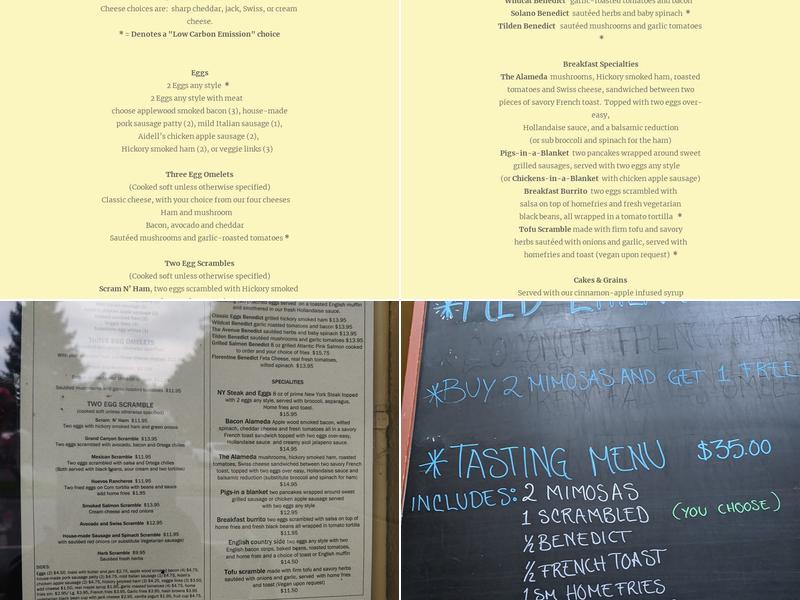 Cheese choices are: sharp cheddar, jack, Swiss, or cream
cheese.
* = Denotes a "Low Carbon Emission" choice
Eggs
2 Eggs any style *
2 Eggs any style with meat
choose applewood smoked bacon (3), house-made
pork sausage patty (2), mild Italian sausage (1),
Aidell's chicken apple sausage (2),
Hickory smoked ham (2), or veggie links (3)
Three Egg Omelets
(Cooked soft unless otherwise specified)
Classic cheese, with your choice from our four cheeses
Ham and mushroom
Bacon, avocado and cheddar
Sautéed mushrooms and garlic-roasted tomatoes *
Two Egg Scrambles
(Cooked soft unless otherwise specified)
Scram N' Ham, two eggs scrambled with Hickory smoked
Wildcat Benedict garlic-roasted tomatoes and bacon
Solano Benedict sautéed herbs and baby spinach *
Tilden Benedict sautéed mushrooms and garlic tomatoes
*
Breakfast Specialties
The Alameda mushrooms, Hickory smoked ham, roasted
tomatoes and Swiss cheese, sandwiched between two
pieces of savory French toast. Topped with two eggs over-
easy,
Hollandaise sauce, and a balsamic reduction
(or sub broccoli and spinach for the ham)
Pigs-in-a-Blanket two pancakes wrapped around sweet
grilled sausages, served with two eggs any style
(or Chickens-in-a-Blanket with chicken apple sausage)
Breakfast Burrito two eggs scrambled with
salsa on top of homefries and fresh vegetarian
black beans, all wrapped in a tomato tortilla *
Tofu Scramble made with firm tofu and savory
herbs sautéed with onions and garlic, served with
homefries and toast (vegan upon request) *
Cakes & Grains
Served with our cinnamon-apple infused syrup
Sautéed mushrooms and garlic roasted tomatoes $11.95
TWO EGG SCRAMBLE
(cooked soft unless otherwise specified)
Scram N' Ham $11.95
Two eggs with hickory smoked ham and green onions
Grand Canyon Scramble $13.95
Two eggs scrambled with avocados, bacon and Ortega chiles
Mexican Scramble $11.95
Two eggs scrambled with salsa and Ortega chiles
(Both served with black beans, sour cream and two tortillas)
Huevos Rancheros $11.95
Two fried eggs on Corn tortilla with beans and sauce
add home fries $1.95
Smoked Salmon Scramble $13.95
Cream cheese and red onions
Avocado and Swiss Scramble $12.95
House-made Sausage and Spinach Scramble $11.95
with sautéed red onions (or substitute Vegetarian sausage)
Herb Scramble $9.95
Sautéed fresh herbs
SIDES:
served on a toasted English muffin
and smothered in our fresh Hollandaise sauce.
Classic Eggs Benedict grilled hickory smoked ham $13.95
Wildcat Benedict garlic roasted tomatoes and bacon $13.95
The Avenue Benedict sautéed herbs and baby spinach $13.95
Tilden Benedict sautéed mushrooms and garlic tomatoes $13.95
Grilled Salmon Benedict 6 oz grilled Atlantic Pink Salmon cooked
to order and your choice of fries $15.75
Florentine Benedict Feta Cheese, real fresh tomatoes,
wilted spinach $13.95
SPECIALTIES
NY Steak and Eggs 8 oz of prime New York Steak topped
with 2 eggs any style, served with broccoli, asparagus,
Home fries and toast.
$15.95
Bacon Alameda Apple wood smoked bacon, wilted
spinach, cheddar cheese and fresh tomatoes all in a savory
French toast sandwich topped with two eggs over-easy,
Hollandaise sauce and creamy aioli jalapeno sauce.
$14.95
The Alameda mushrooms, hickory smoked ham, roasted
tomatoes, Swiss cheese sandwiched between two savory French
toast, topped with two eggs over easy, Hollandaise sauce and
balsamic reduction (substitute broccoli and spinach for ham)
$14.95
Pigs-in a blanket two pancakes wrapped around sweet
grilled sausage or chicken apple sausage served
with two eggs any style
$12.95
Breakfast burrito two eggs scrambled with salsa on top of
home fries and fresh black beans all wrapped in tomato tortilla
$11.95
English country side two eggs any style with
English bacon strips, baked beans, roasted tomatoes,
and home fries and a choice of toast or English muffin
$14.50
Tofu scramble made with firm tofu and savory herbs
sautéed with onions and garlic, served with home fries
and toast (Vegan upon request)
$11.50
*BUY 2 MIMOSAS AND GET 1 FREE
*TASTING MENU $35.00
INCLUDES: 2 MIMOSAS
1 SCRAMBLED (YOU CHOOSE)
½ BENEDICT
½ FRENCH TOAST
1 SM HOMEFRIES